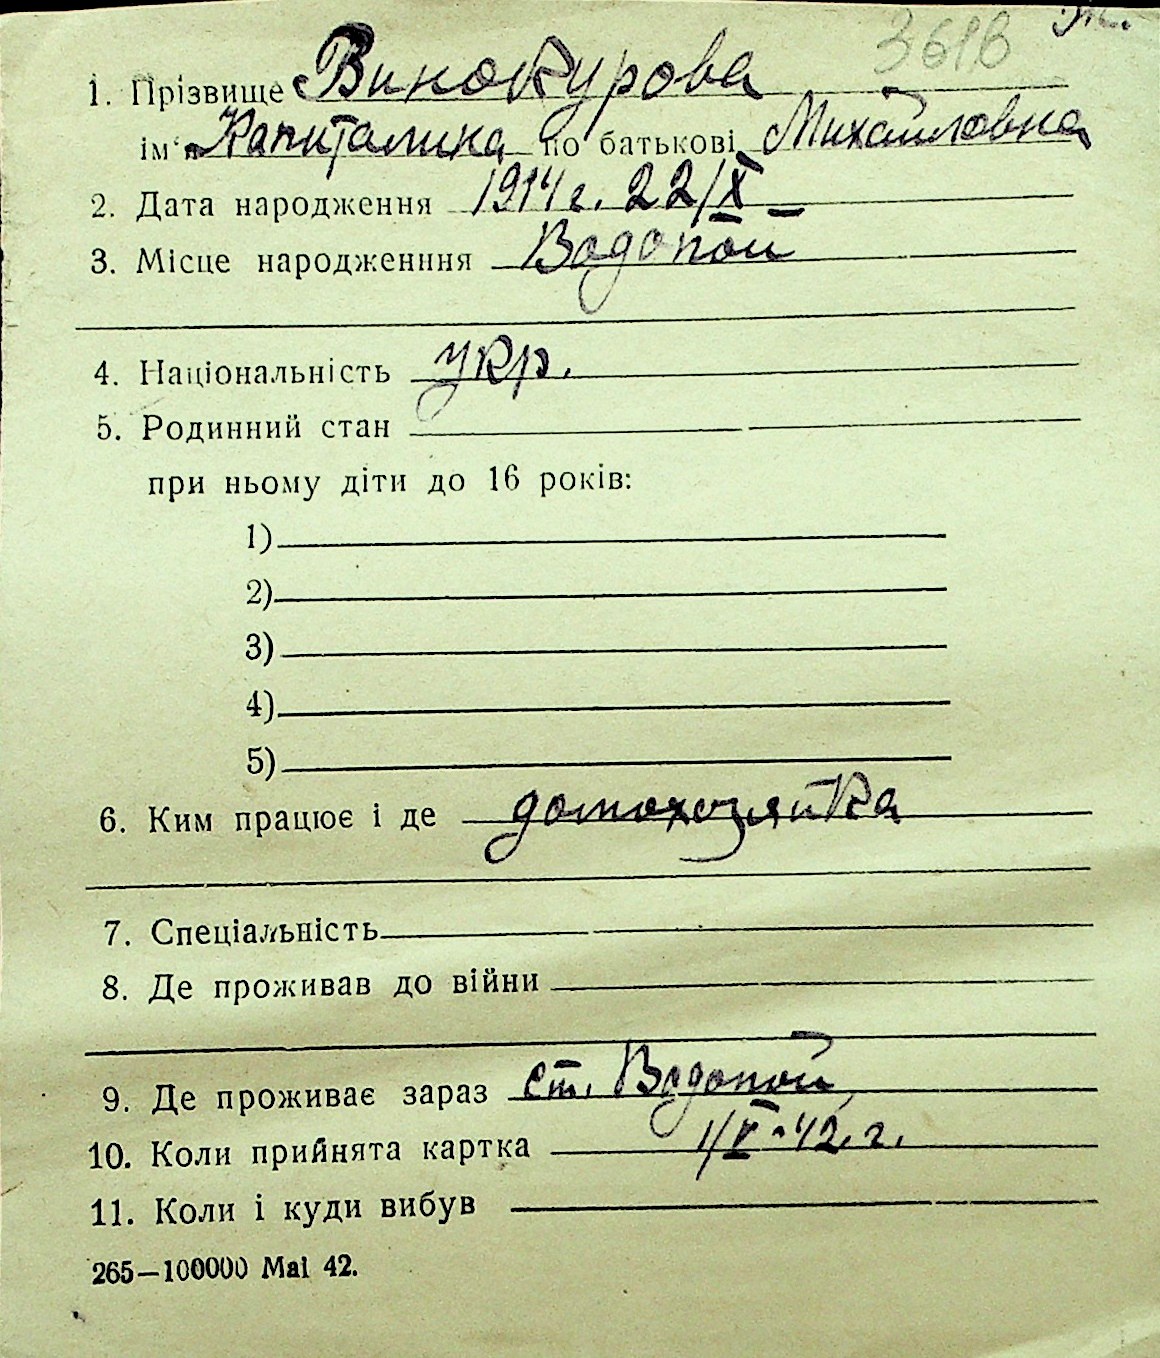 3618
1. Прізвище Винокурова
ім'я Капиталина по батькові Михайловна
2. Дата народження 1914 г. 22/X
3. Місце народженння Водопой
4. Національність укр.
5. Родинний стан
при ньому діти до 16 років:
1)
2)
3)
4)
5)
6. Ким працює і де домохозяйка
7. Спеціальність
8. Де проживав до війни
9. Де проживає зараз ст. Водопой
10. Коли прийнята картка 1/V-42 г.
11. Коли і куди вибув
265—100000 Mai 42.